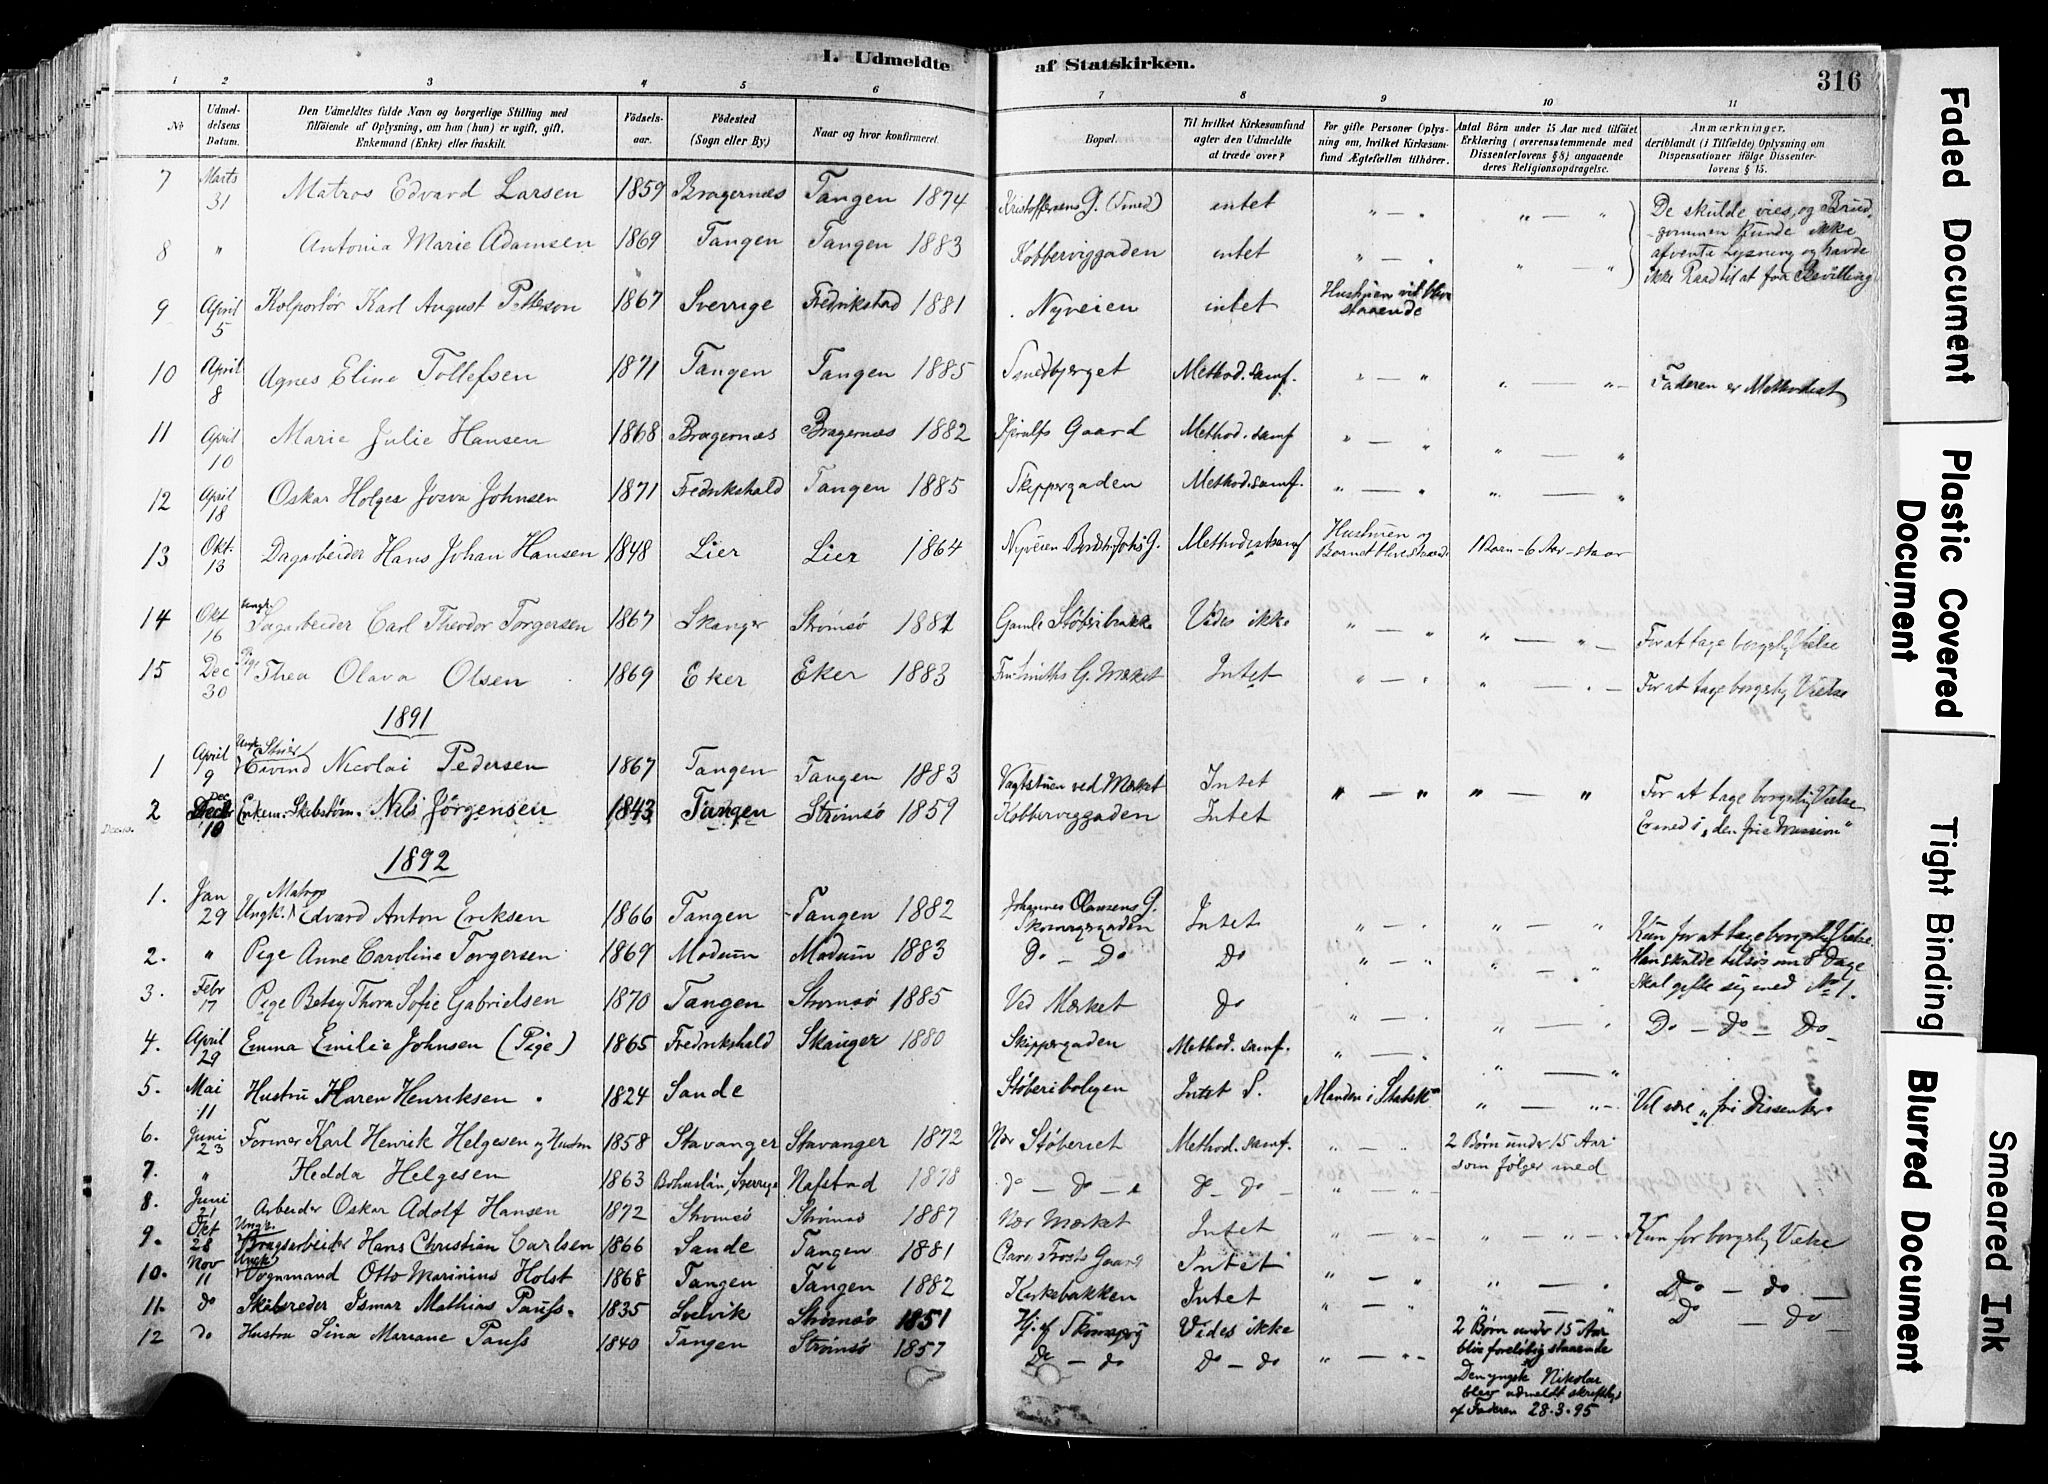 I. Udmeldte af Statskirken.
316
1 2 3 4 5 6 7 8 9 10 11
No
Udmeldelsens Datum.
Den Udmeldtes fulde Navn og borgerlige Stilling med Tilføiende af Oplysning, om han (hun) er ugift, gift, Enkemand (Enke) eller fraskilt.
Fødselsaar.
Fødested (Sogn eller By.)
Naar og hvor konfirmeret.
Bopæl.
Til hvilket Kirkesamfund agter den Udmeldte at træde over?
For gifte Personer Oplysning om, hvilket Kirkesamfund Ægtefællen tilhører.
Antal Børn under 15 Aar med tilføiet Erklæring (overensstemmende med Dissenterlovens § 8) angaaende deres Religionsopdragelse.
Anmærkninger, deriblandt (i Tilfælde) Oplysning om Dispensationer ifølge Dissenterlovens § 15.
7 Marts 31 Matros Edvard Larsen 1859 Bragernæs Tangen 1874 Kristoffersens G. (Smed) intet " — " " — " De skulde vies, og Brudgommen kunde ikke
8 " Antonia Marie Adamsen 1869 Tangen Tangen 1883 Kobberviggaden intet " — " " — " afvente Lysning og havde ikke Raad til at faa Bevilling
9 April 5 Kolportør Karl August Petterson 1867 Sverrige Fredrikstad 1881 Nyveien intet Hustruen vil blive staaende
10 April 8 Agnes Eline Tollefsen 1871 Tangen Tangen 1885 Smedbjerget Method. samf. " — " " — " Faderen er Methodist
11 April 10 Marie Julie Hansen 1868 Bragernæs Bragernæs 1882 Gaard Method. samf " — " " — "
12 April 18 Oskar Holger Josva Johnsen 1871 Fredrikshald Tangen 1885 Skippergaden Method. samf. " — " " — "
13 Okt. 13 Dagarbeider Hans Johan Hansen 1848 Lier Lier 1864 Nyveien Methodistsamf Hustruen og Barnet 1 Barn - 6 Aar - staar
14 Okt 16 Ungk. Dagarbeider Carl Theodor Torgersen 1867 Skauger Strømsø 1881 Gamle Støberibakke Vides ikke " — " " — " — For at tage borgerlig Vielse
15 Dec 30 Pige Thea Olava Olsen 1869 Eker Eker 1883 Smiths G. Mærket Intet " — " " — " — For at tage borgerlig Vielse
1891
1 April 9 Ungk. Eivind Nicolai Pedersen 1867 Tangen Tangen 1883 Vagtstuen ved Mærket Intet " — " " — " For at tage borgerlig Vielse
2 Dec 10 Enkem. Skibstøm. Nils Jörgensen 1843 Tangen Strømsø 1859 Kobberviggaden Intet Er med i "den frie Mission"
1892
1. Jan 29 Ungk. Matros Edvard Anton Eriksen 1866 Tangen Tangen 1882 Johannes Olausens G. Skomagergaden Intet " — " " — " Kun for at tage borgerlig Vielse.
2. " Pige Anne Caroline Torgersen 1869 Modum Modum 1883 Do — Do Do " — " " — " Han skulde tilsjøs om 8 Dage
3. Febr 17 Pige Betsy Thora Sofie Gabrielsen 1870 Tangen Strømsø 1885 Ved Mærket do " — " " — " Skal gifte sig med No 1.
Do — do — Do
4. April 29 Emma Emilie Johnsen (Pige) 1865 Fredrikshald Skauger 1880 Skippergaden Method. samf. " — " " — "
5. Mai 11 Hustru Maren Henriksen 1824 Sande Støberiboligen Intet S. Manden i Statsk. " — " — Vil være "fri Dissenter"
6. Juni 23 Former Karl Henrik Helgesen og Hustru 1858 Stavanger Stavanger 1872 Nær Støberiet Method. samf. " — " 2 Børn under 15 Aar som følger med
7. " Hedda Helgesen 1863 Bohuslän, Sverrige Nafstad 1878 do — do — do — do — " — "
8. Juni 21 Arbeider Oskar Adolf Hansen 1872 Strømsø Strømsø 1887 Nær Mærket Intet " — " " — " — Kun for borgerlig Vielse
9. Okt 28 Ungk. Brugsarbeider Hans Christian Carlsen 1866 Sande Tangen 1881 Gaard Intet " — " " — " Do — do —
10. Nov 11 Ungk. Vognmand Otto Marinius Holst 1868 Tangen Tangen 1882 Kirkebakken Intet " — " " — " Do — do —
11. do Skibsreder Ismar Mathias Pauss. 1835 Svelvik Strømsø 1851 Hj. af Vides ikke 2 Børn under 15 Aar
12 do Hustru Lina Mariane Pauss 1840 Tangen Strømsø 1857 Do — do Do — do " — " blir foreløbig staaende
Den yngste Nikolai
blev udmeldt skriftlig
af Faderen 28.3.95
Faded Document
Plastic Covered Document
Tight Binding
Blurred Document
Smeared Ink